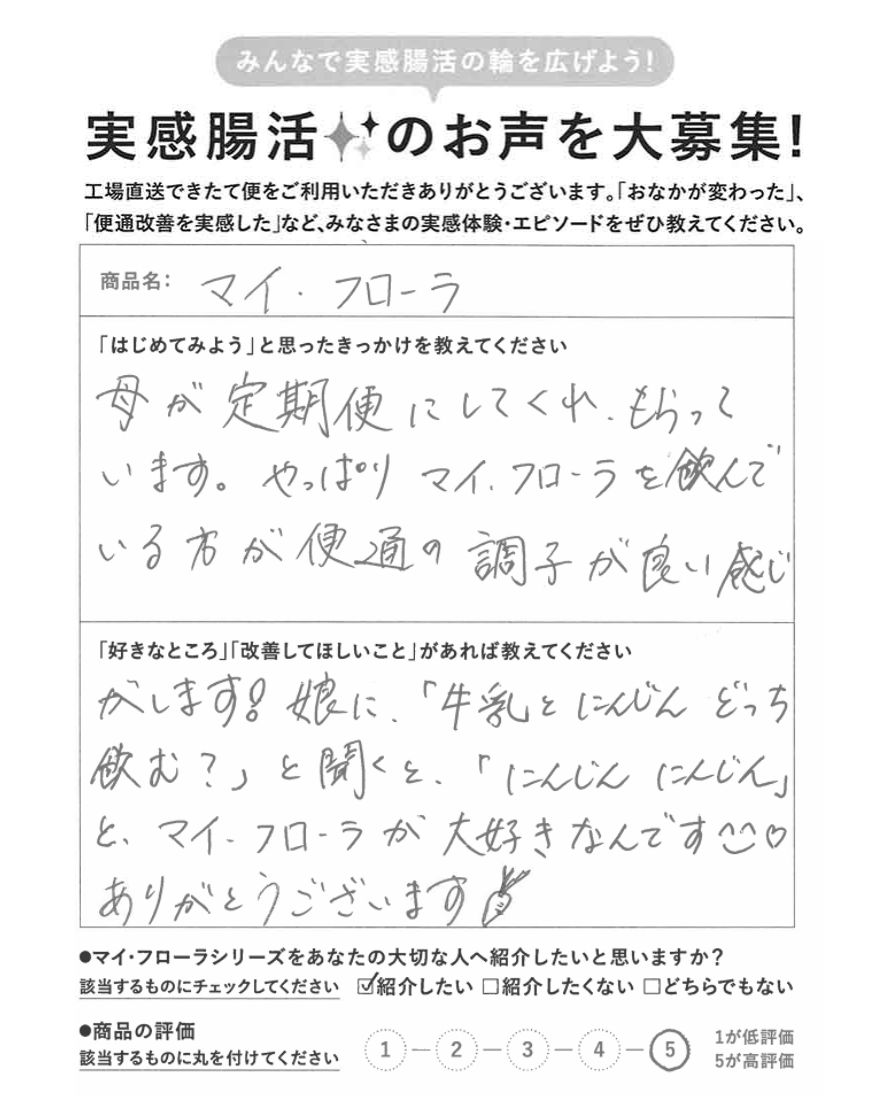 みんなで実感腸活の輪を広げよう!
実感腸活のお声を大募集!
工場直送できたて便をご利用いただきありがとうございます。「おなかが変わった」、
「便通改善を実感した」など、みなさまの実感体験・エピソードをぜひ教えてください。
商品名: マイ・フローラ
「はじめてみよう」と思ったきっかけを教えてください
母が定期便にしてくれ、もらって
います。やっぱりマイ・フローラを飲んで
いる方が便通の調子が良い感じ
「好きなところ」「改善してほしいこと」があれば教えてください
がします! 娘に、「牛乳とにんじんどっち
飲む?」と聞くと、「にんじんにんじん」
と、マイ・フローラが大好きなんです♡
ありがとうございます
●マイ・フローラシリーズをあなたの大切な人へ紹介したいと思いますか?
該当するものにチェックしてください ☑紹介したい □紹介したくない □どちらでもない
●商品の評価
該当するものに丸を付けてください 1 — 2 — 3 — 4 — 5
1が低評価
5が高評価